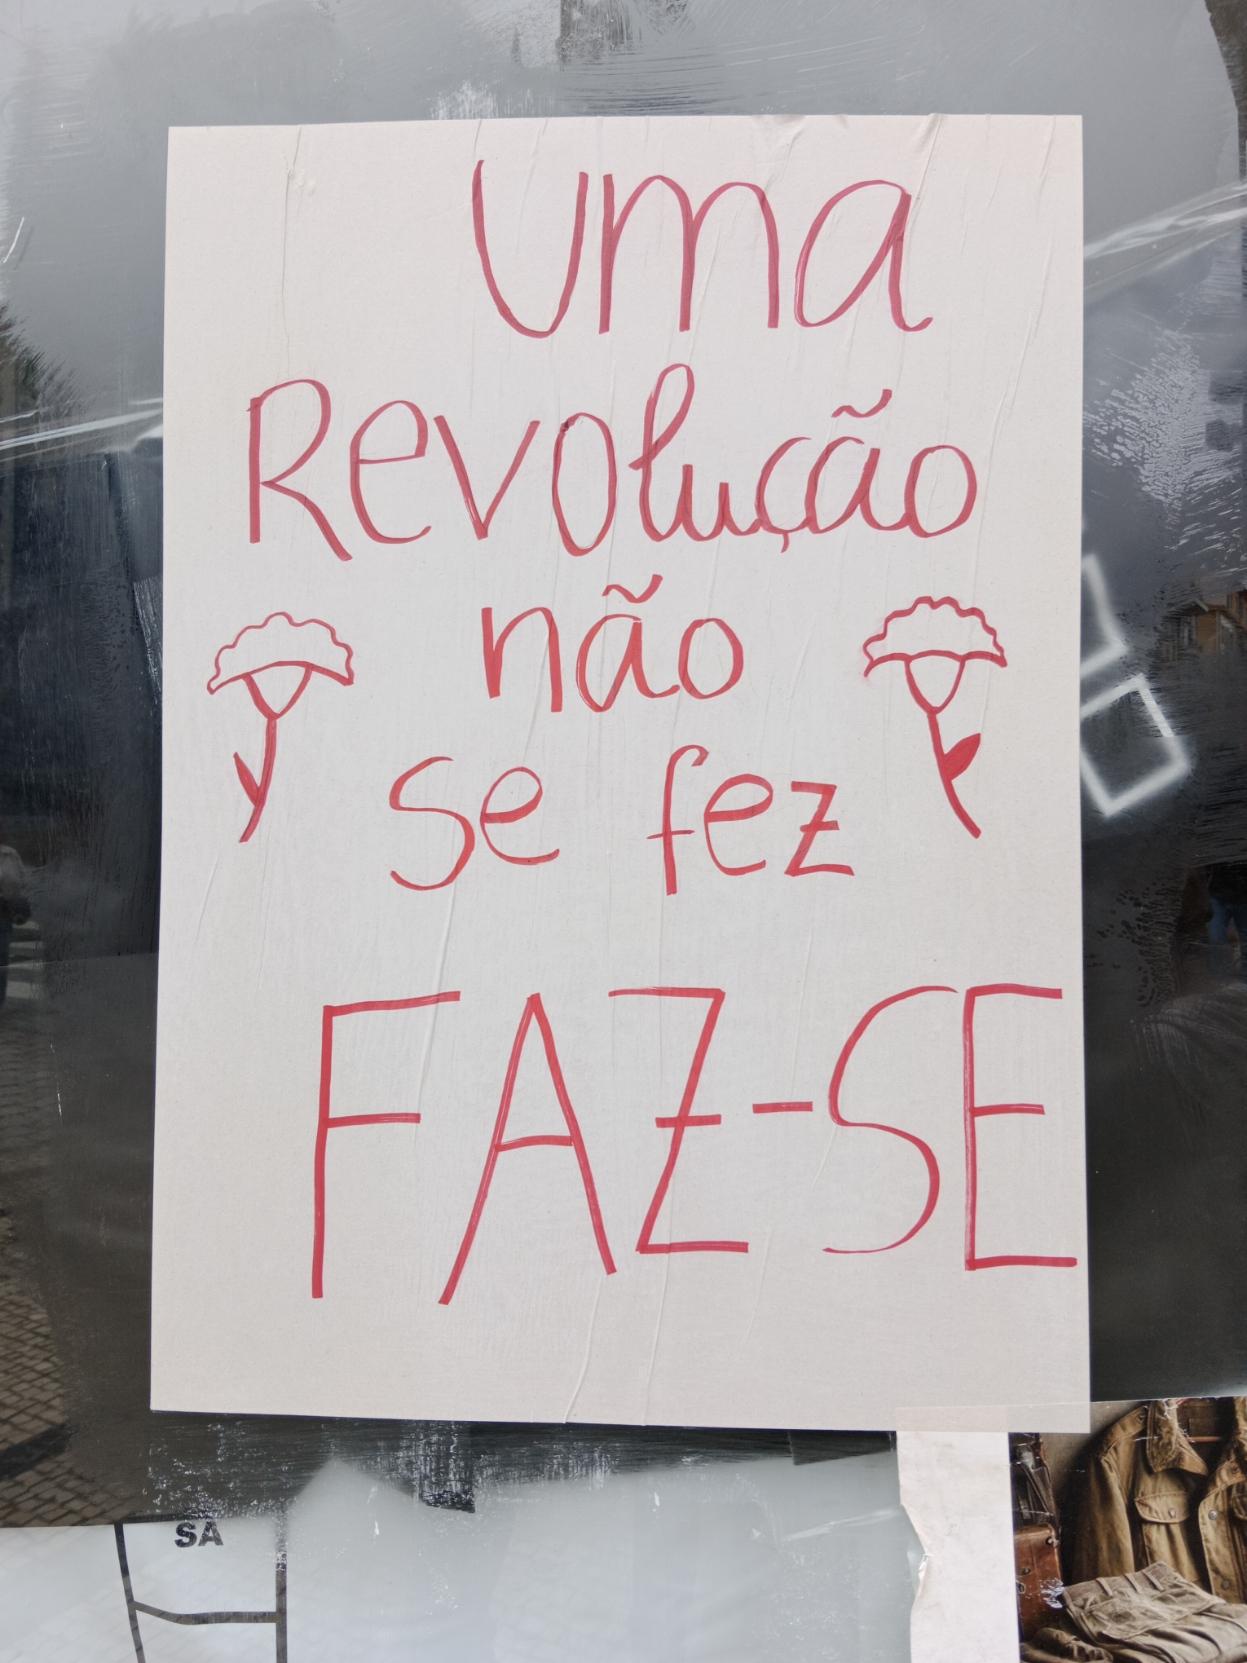 uma
Revolução
não
se fez
FAZ-SE
SA